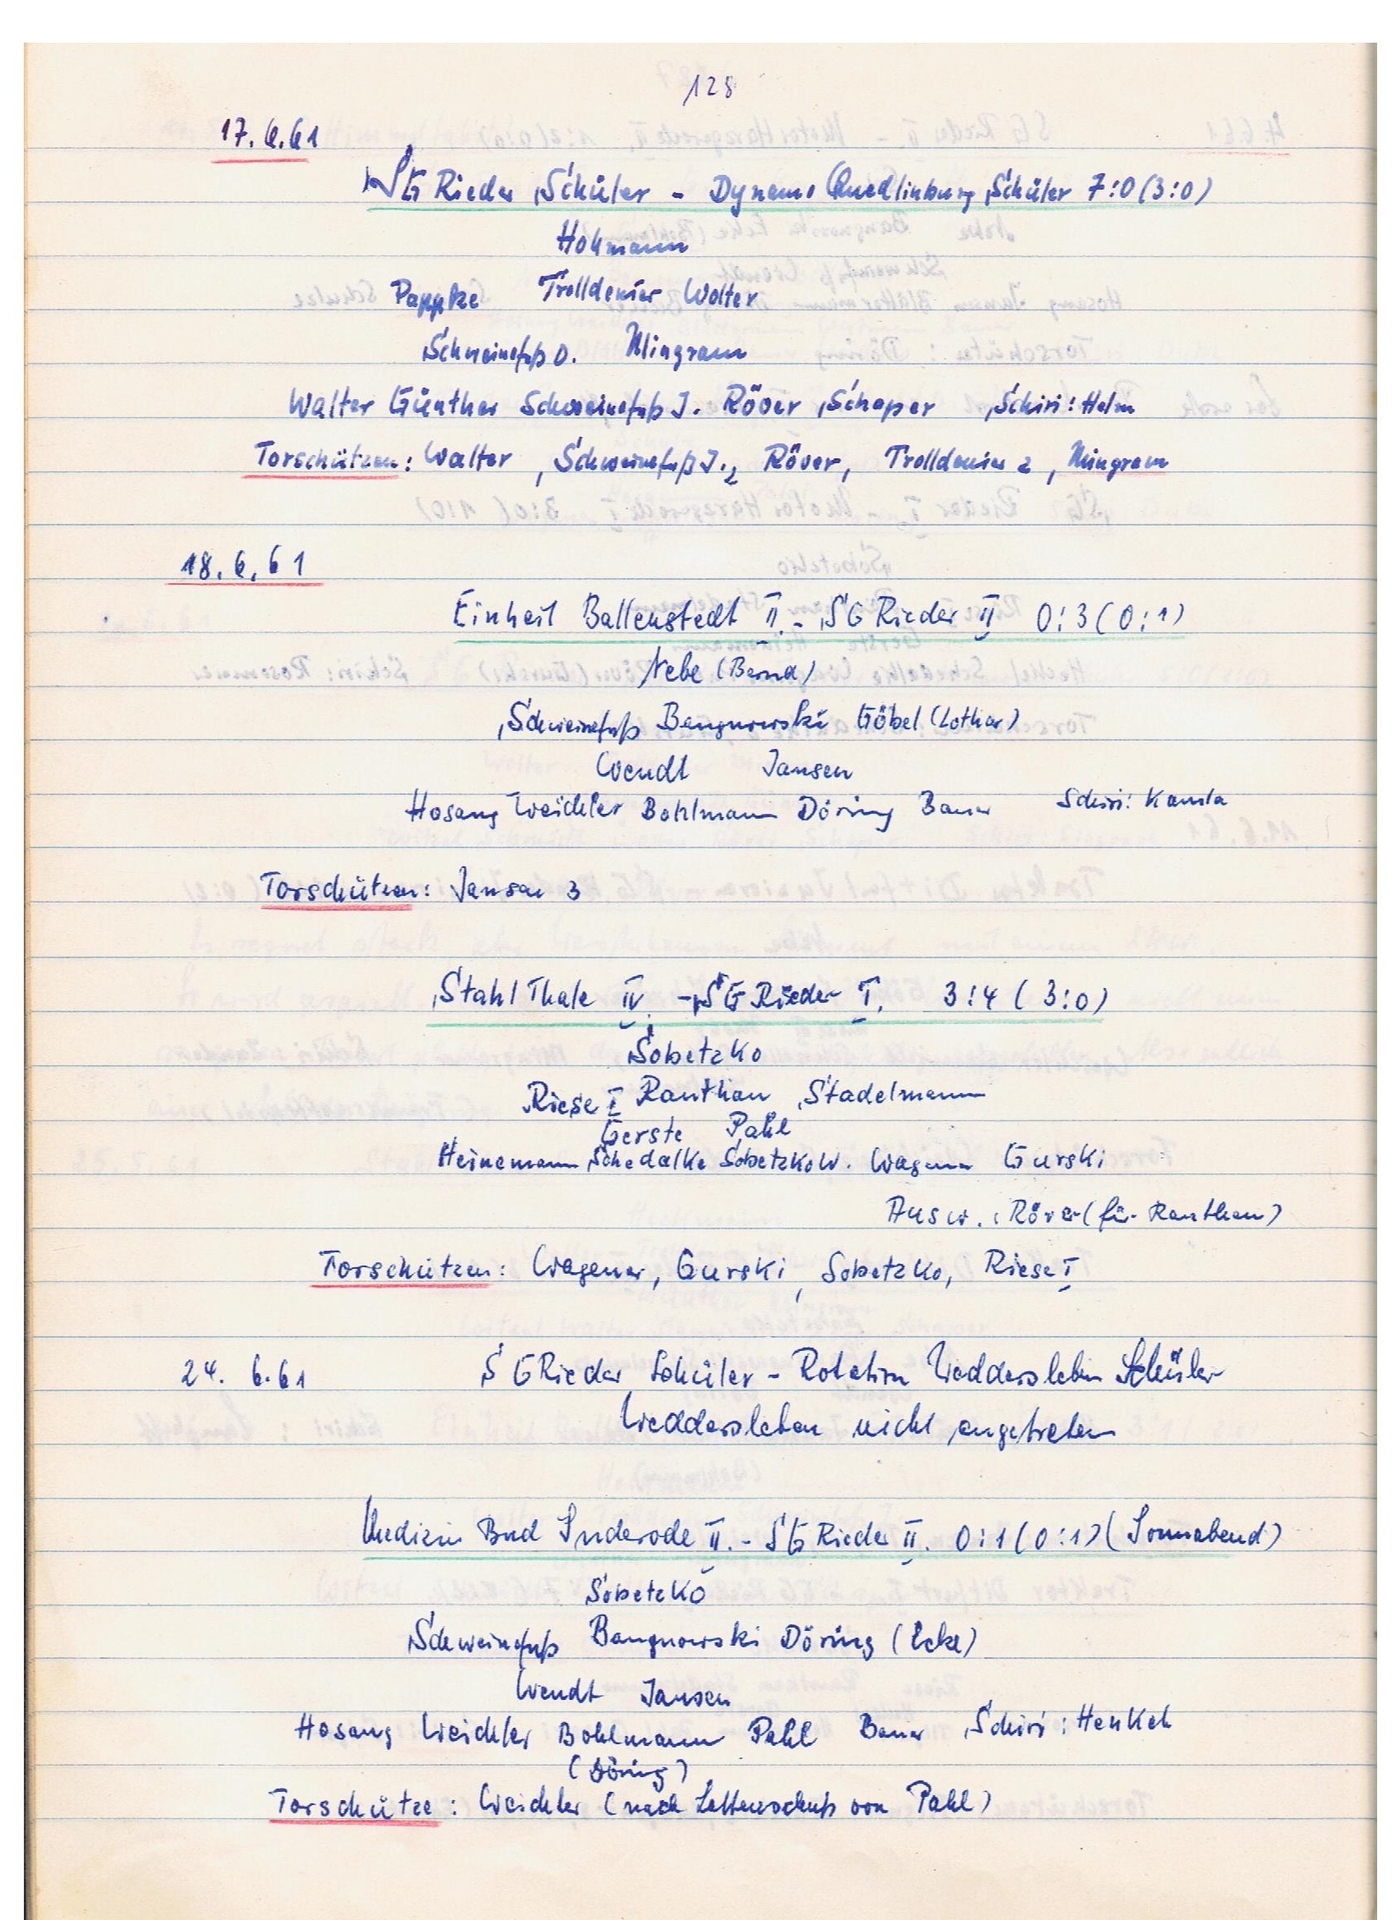 128
17.6.61
SG Rieder Schüler - Dynamo Quedlinburg Schüler 7:0 (3:0)
Hohmann
Pappke Trolldenier Wolter
Schweinefuß D. Mingram
Walter Günther Schweinefuß J. Röver Schaper Schiri: Helm
Torschützen: Walter, Schweinefuß J. 2, Röver, Trolldenier 2, Mingram
18.6.61
Einheit Ballenstedt II - SG Rieder II 0:3 (0:1)
Nebe (Bernd)
Schweinefuß Bangnowski Göbel (Lothar)
Wendt Jansen
Hosang Weichler Bohlmann Döring Bauer Schiri: Kamla
Torschützen: Jansen 3
Stahl Thale IV. - SG Rieder I. 3:4 (3:0)
Sobetzko
Riese I Ranthan Stadelmann
Gerste Pahl
Heinemann Schedalke Sobetzko W. Wagener Gurski
Ausw.: Röver (für Ranthan)
Torschützen: Wagener, Gurski, Sobetzko, Riese I
24. 6.61 SG Rieder Schüler - Rotation Weddersleben Schüler
Weddersleben nicht angetreten
Medizin Bad Suderode II. - SG Rieder II. 0:1 (0:1) (Sonnabend)
Sobetzko
Schweinefuß Bangnowski Döring (Ecke)
Wendt Jansen
Hosang Weichler Bohlmann Pahl Bauer Schiri: Henkel
(Döring)
Torschütze: Weichler (nach Lattenschuß von Pahl)